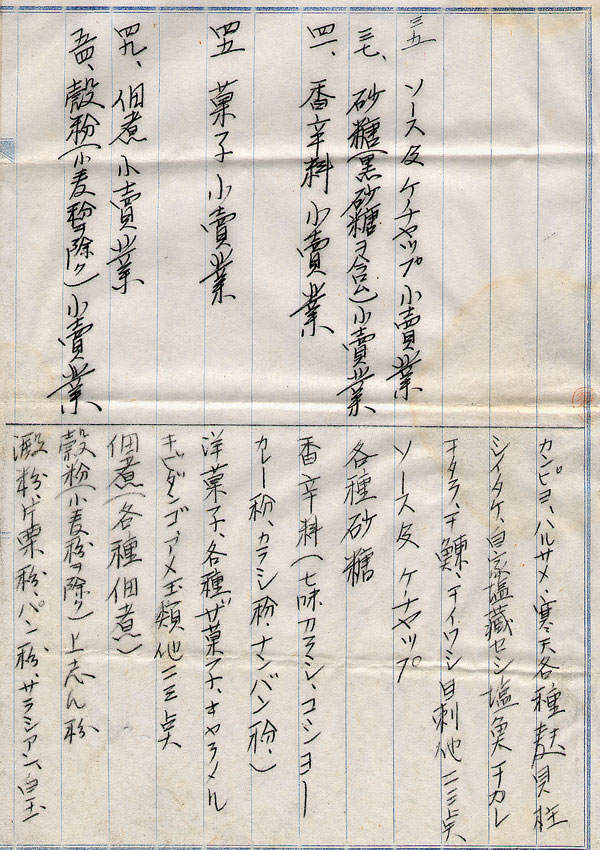 三五 ソース及ケチヤツプ小賣業
三七、砂糖(黒砂糖ヲ含ム)小賣業
四一、香辛料小賣業
四五 菓子小賣業
四九、佃煮小賣業
五四、穀粉(小麦粉ヲ除ク)小賣業
カンピヨ、ハルサメ、寒天各種麩、貝柱
シイタケ、自家塩藏セシ塩魚干カレ
干タラ、干鰊、干イワシ目刺他二三点
ソース及ケチヤツプ
各種砂糖
香辛料(七味カラシ、コシヨー
カレー粉、カラシ粉、ナンバン粉、)
洋菓子、各種ザ菓子、キヤラメル
キビダンゴ、アメ玉類他二三点
佃煮(各種佃煮)
穀粉(小麦粉ヲ除ク)上志ん粉
澱粉、片栗粉、パン粉、サラシアン、白玉